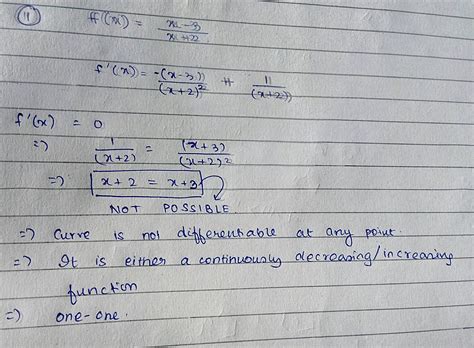 11
ff'(x) = x-3 / x+22
f'(x) = -(x-3)) / (x+2)² + 11 / (x+2))
f'(x) = 0
=) 1 / (x+2) = (x+3) / (x+2)²
=) x+2 = x+3
NOT POSSIBLE
=) Curve is not differentiable at any point.
=) It is either a continuously decreasing/increasing
function
=) one-one.